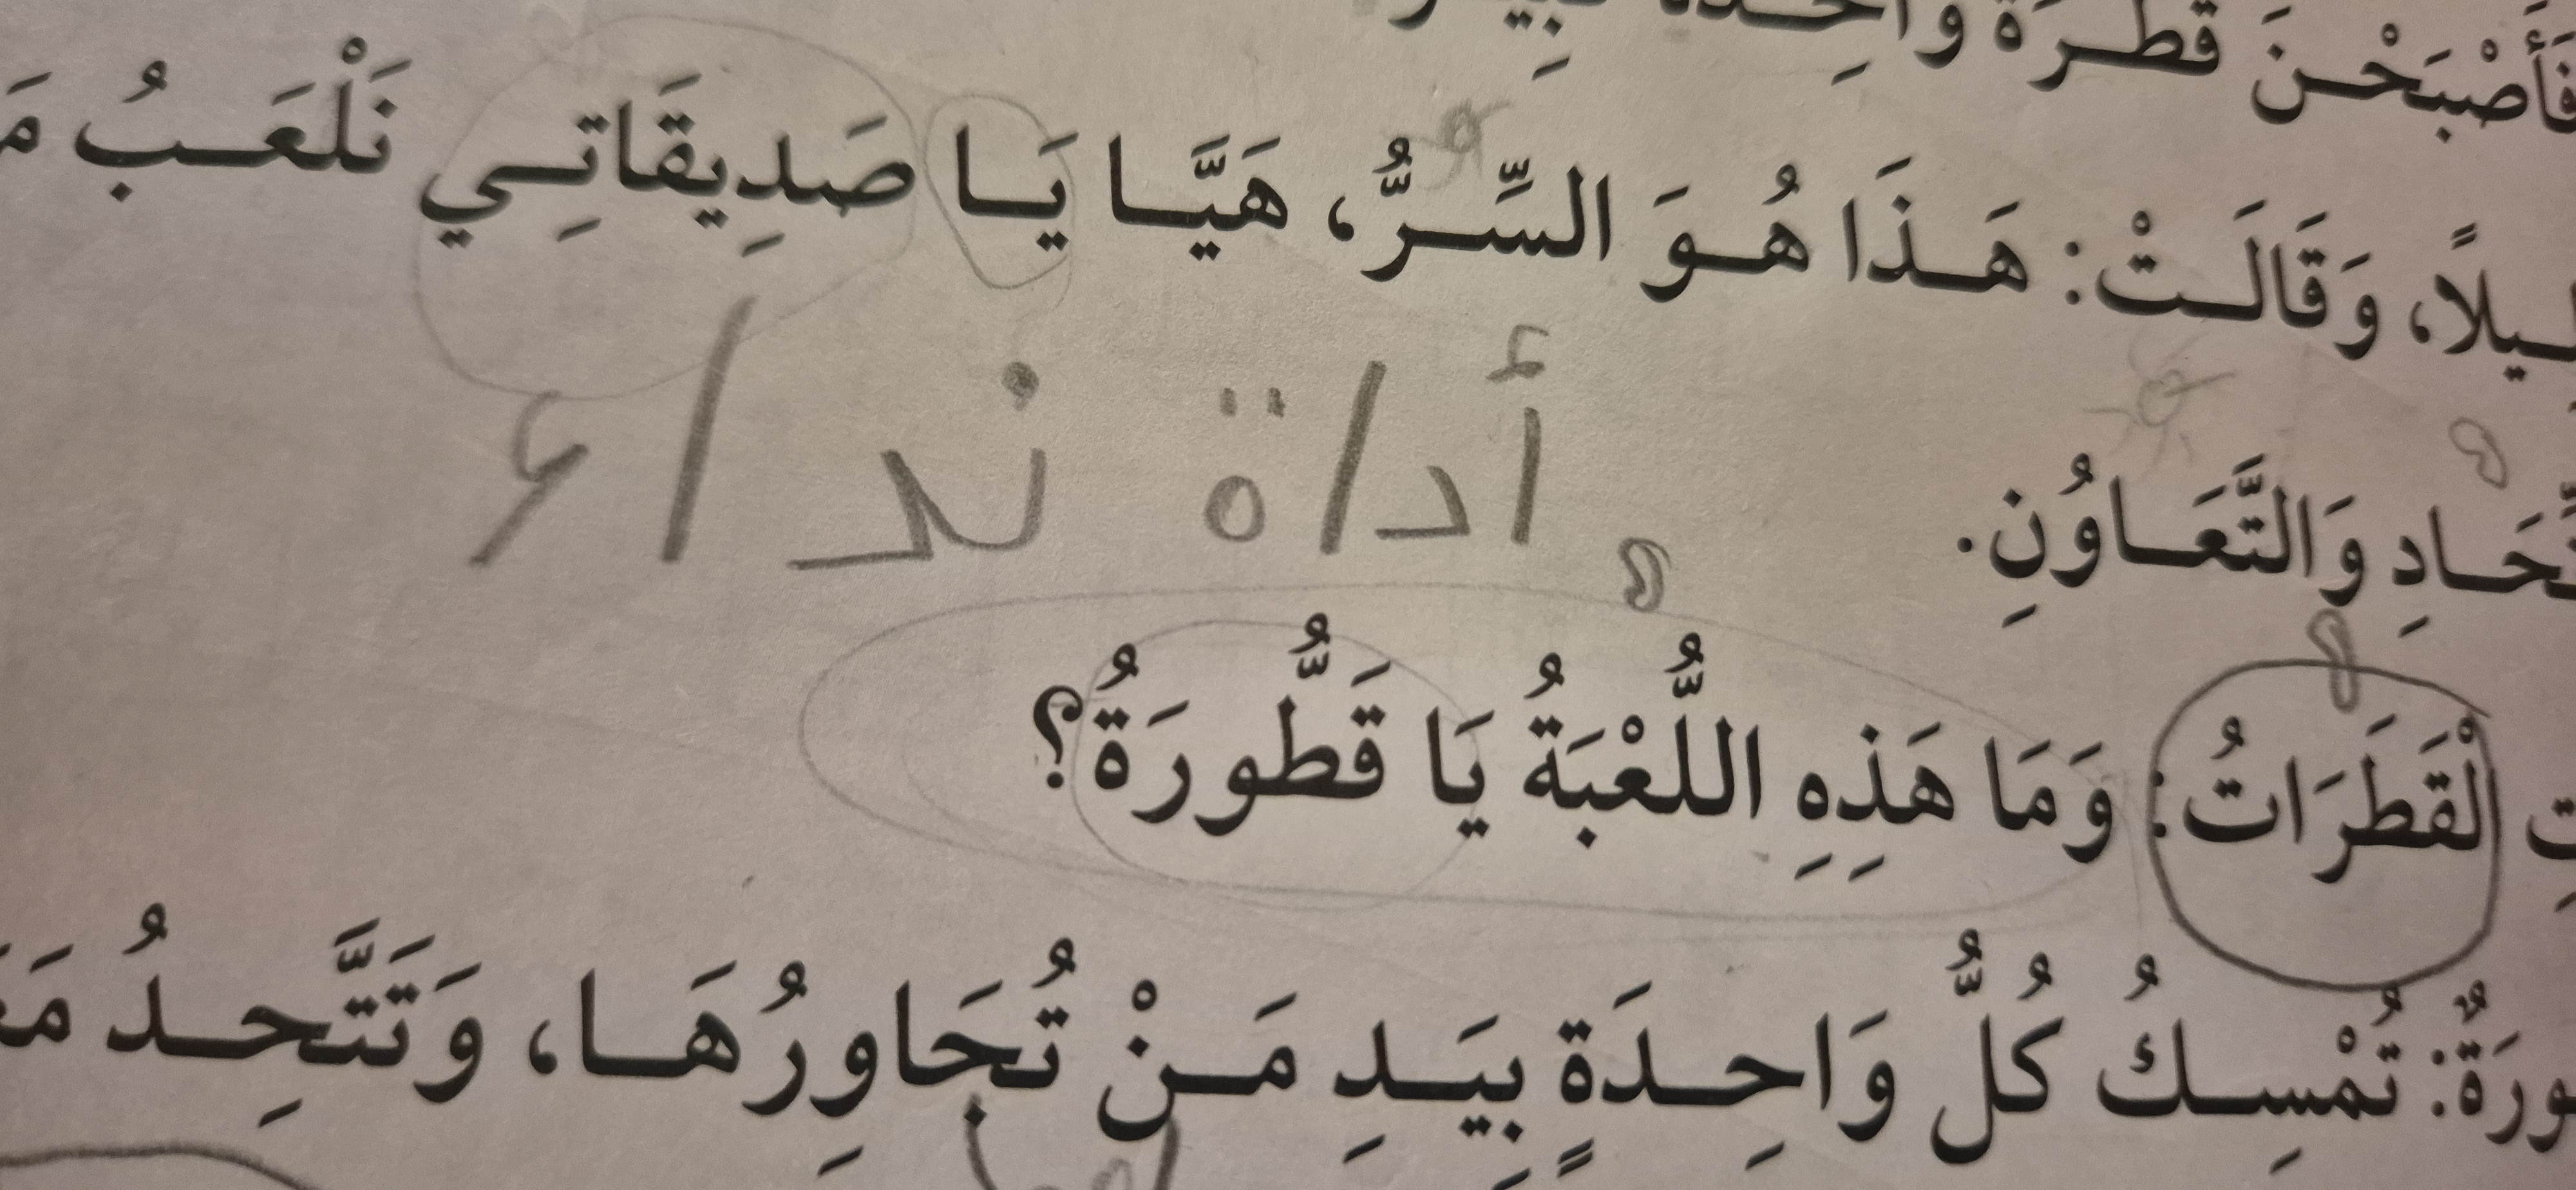 فَأَصْبَحْنَ قَطْرَةً وَاحِدَةً
وَقَالَتْ: هَذَا هُوَ السِّرُّ، هَيَّا يَا صَدِيقَاتِي نَلْعَبُ
أداة نداء
وَالتَّعَاوُنِ.
الْقَطَرَاتُ: وَمَا هَذِهِ اللُّعْبَةُ يَا قَطُّورَةُ؟
تُمْسِكُ كُلُّ وَاحِدَةٍ بِيَدِ مَنْ تُجَاوِرُهَا، وَتَتَّحِدُ